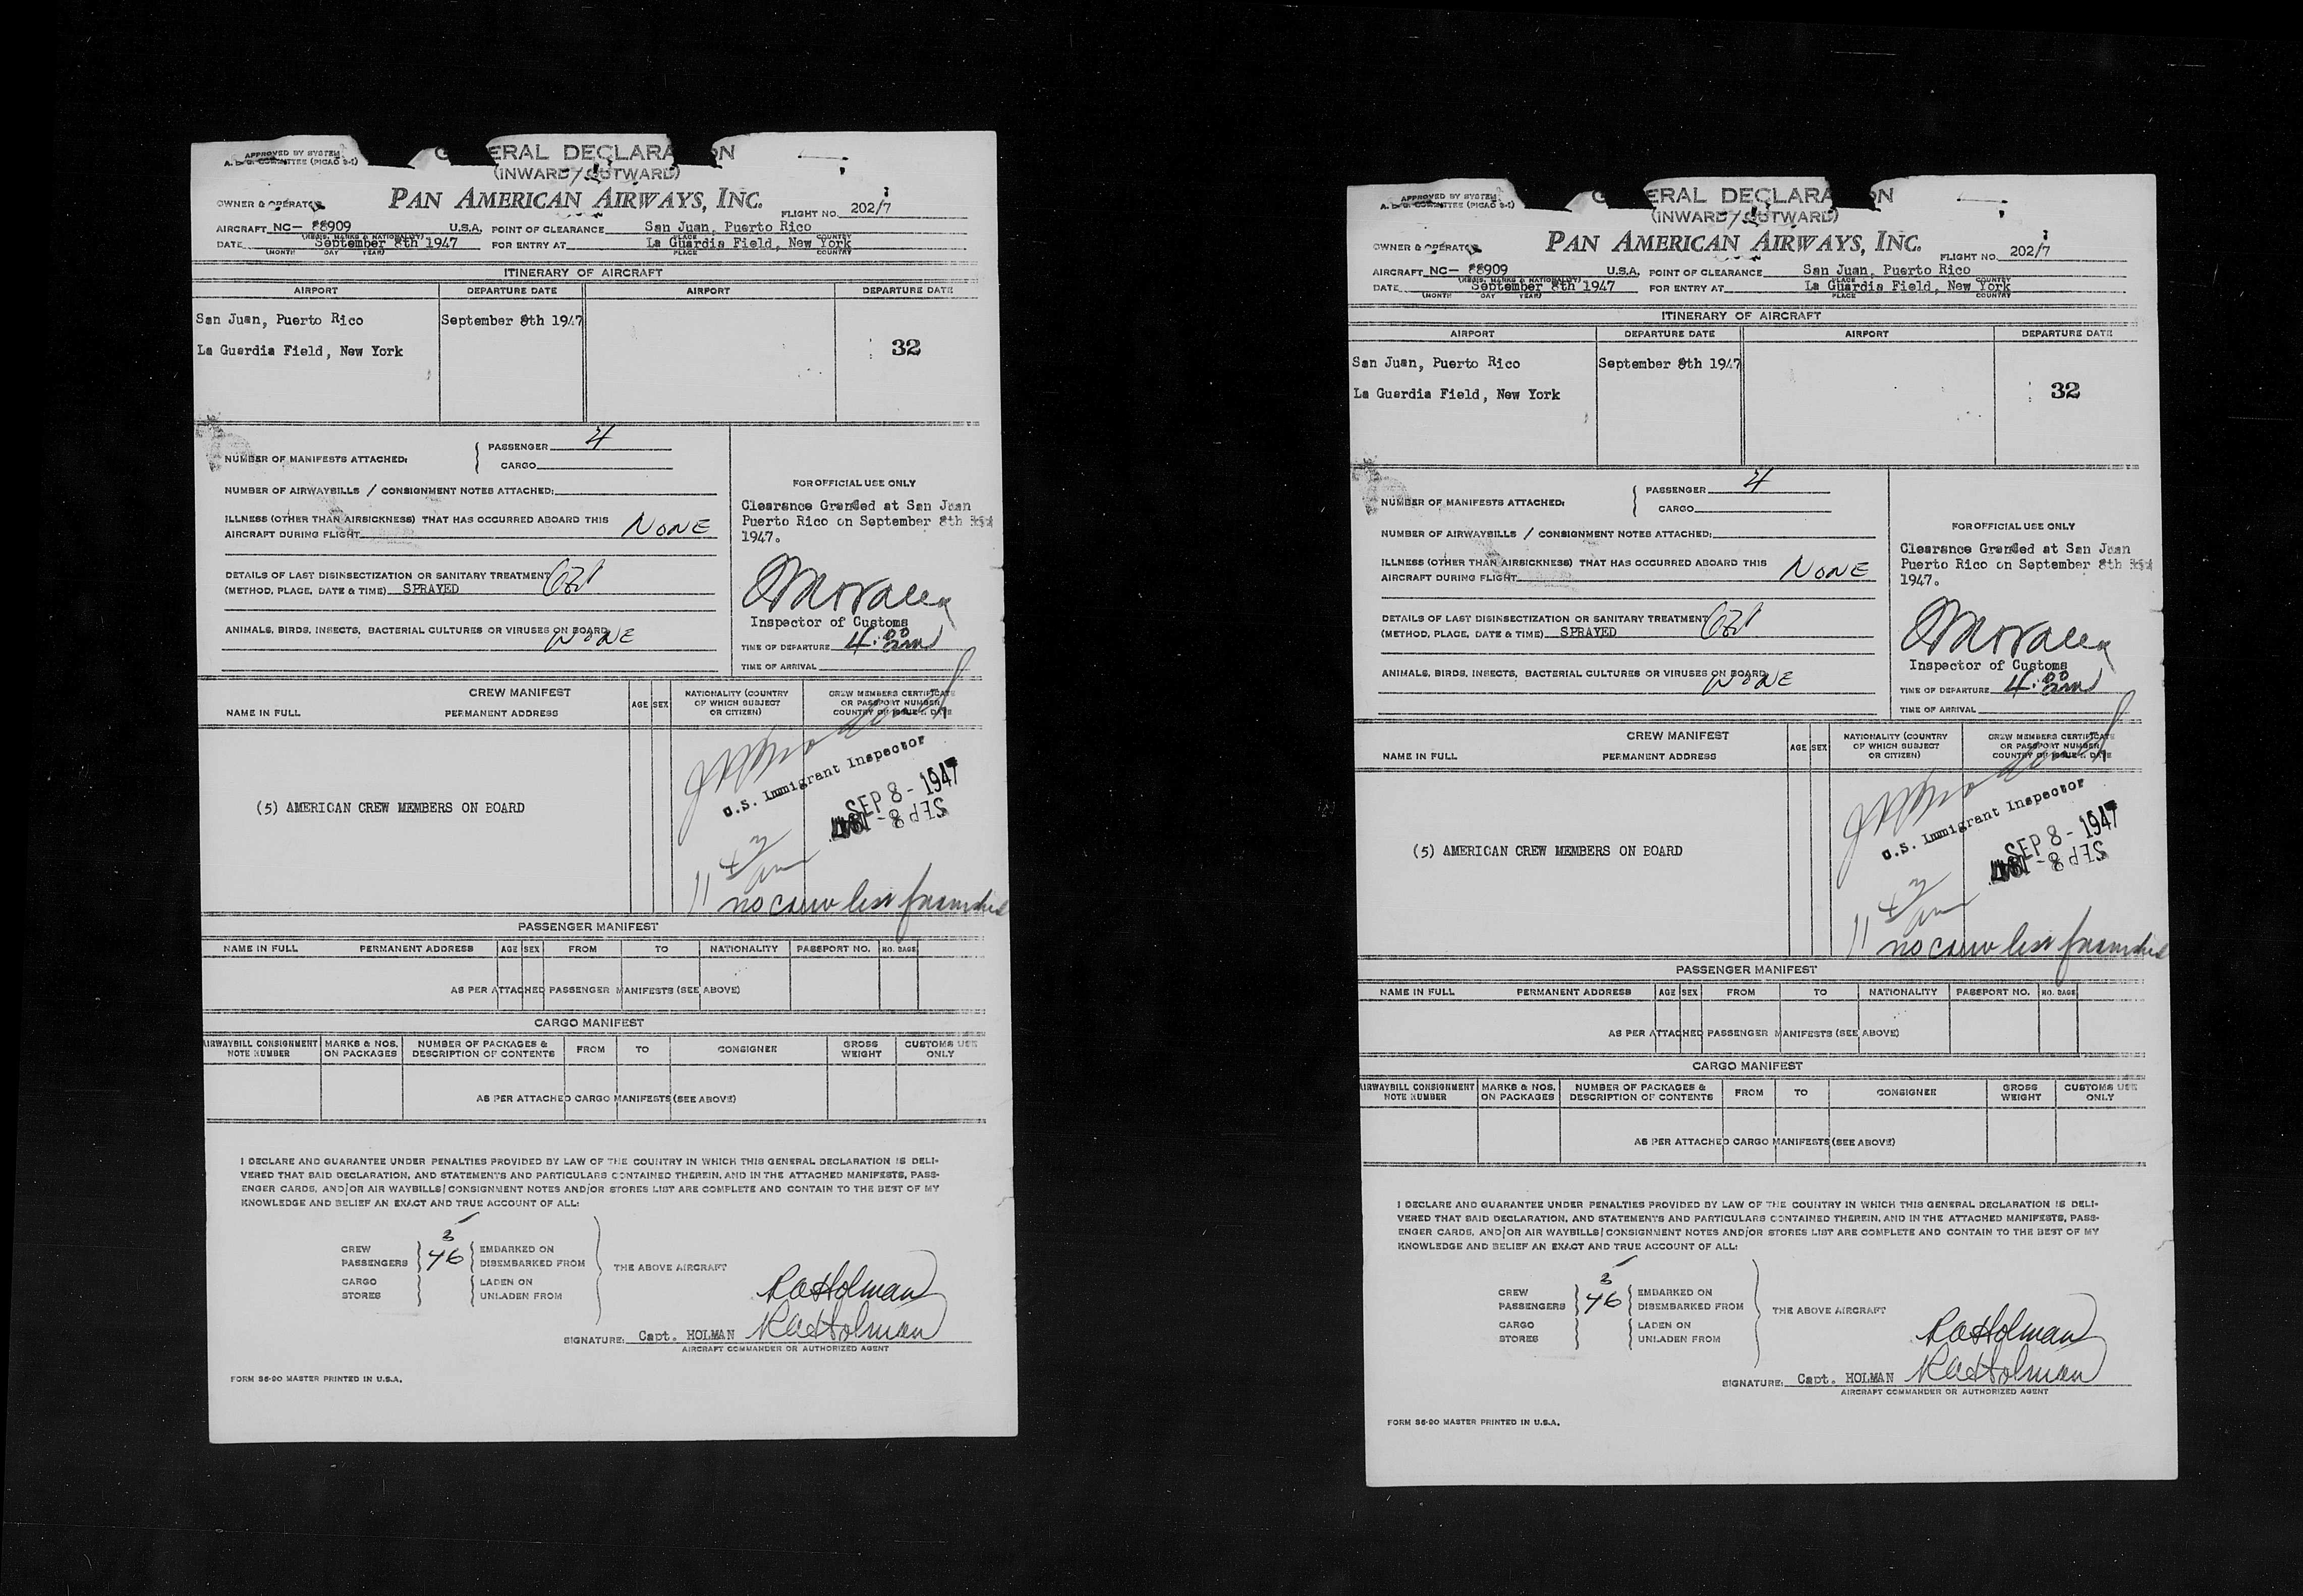 APPROVED BY SYSTEM
A. D. G. COMMITTEE (PICAO 9-1)
GENERAL DECLARATION
(INWARD / OUTWARD)
OWNER & OPERATOR
PAN AMERICAN AIRWAYS, INC.
FLIGHT NO. 202/7
AIRCRAFT NC- 88909 U.S.A. POINT OF CLEARANCE San Juan, Puerto Rico
(REGIS. MARKS & NATIONALITY) PLACE COUNTRY
DATE September 8th 1947 FOR ENTRY AT La Guardia Field, New York
(MONTH DAY YEAR) PLACE COUNTRY
ITINERARY OF AIRCRAFT
AIRPORT DEPARTURE DATE AIRPORT DEPARTURE DATE
San Juan, Puerto Rico September 8th 1947
La Guardia Field, New York 32
NUMBER OF MANIFESTS ATTACHED: PASSENGER 4
CARGO
NUMBER OF AIRWAYBILLS / CONSIGNMENT NOTES ATTACHED:
ILLNESS (OTHER THAN AIRSICKNESS) THAT HAS OCCURRED ABOARD THIS
AIRCRAFT DURING FLIGHT NONE
DETAILS OF LAST DISINSECTIZATION OR SANITARY TREATMENT
(METHOD, PLACE, DATE & TIME) SPRAYED
ANIMALS, BIRDS, INSECTS, BACTERIAL CULTURES OR VIRUSES ON BOARD NONE
FOR OFFICIAL USE ONLY
Clearance Granted at San Juan
Puerto Rico on September 8th
1947.
Inspector of Customs
TIME OF DEPARTURE 4:00 am
TIME OF ARRIVAL
CREW MANIFEST
NAME IN FULL PERMANENT ADDRESS AGE SEX NATIONALITY (COUNTRY OF WHICH SUBJECT OR CITIZEN) CREW MEMBERS CERTIFICATE OR PASSPORT NUMBER COUNTRY OF ISSUE & DATE
U.S. Immigrant Inspector
SEP 8 - 1947
SEP 8 - 1947
(5) AMERICAN CREW MEMBERS ON BOARD
11 42 am
no crew list furnished
PASSENGER MANIFEST
NAME IN FULL PERMANENT ADDRESS AGE SEX FROM TO NATIONALITY PASSPORT NO. NO. BAGS
AS PER ATTACHED PASSENGER MANIFESTS (SEE ABOVE)
CARGO MANIFEST
AIRWAYBILL CONSIGNMENT NOTE NUMBER MARKS & NOS. ON PACKAGES NUMBER OF PACKAGES & DESCRIPTION OF CONTENTS FROM TO CONSIGNEE GROSS WEIGHT CUSTOMS USE ONLY
AS PER ATTACHED CARGO MANIFESTS (SEE ABOVE)
I DECLARE AND GUARANTEE UNDER PENALTIES PROVIDED BY LAW OF THE COUNTRY IN WHICH THIS GENERAL DECLARATION IS DELI-
VERED THAT SAID DECLARATION, AND STATEMENTS AND PARTICULARS CONTAINED THEREIN, AND IN THE ATTACHED MANIFESTS, PASS-
ENGER CARDS, AND/OR AIR WAYBILLS/CONSIGNMENT NOTES AND/OR STORES LIST ARE COMPLETE AND CONTAIN TO THE BEST OF MY
KNOWLEDGE AND BELIEF AN EXACT AND TRUE ACCOUNT OF ALL:
CREW 5 EMBARKED ON
PASSENGERS 46 DISEMBARKED FROM THE ABOVE AIRCRAFT
CARGO LADEN ON
STORES UNLADEN FROM
RA Holman
SIGNATURE: Capt. HOLMAN RA Holman
AIRCRAFT COMMANDER OR AUTHORIZED AGENT
FORM 86-90 MASTER PRINTED IN U.S.A.
APPROVED BY SYSTEM
A. D. G. COMMITTEE (PICAO 9-1)
GENERAL DECLARATION
(INWARD / OUTWARD)
OWNER & OPERATOR
PAN AMERICAN AIRWAYS, INC.
FLIGHT NO. 202/7
AIRCRAFT NC- 88909 U.S.A. POINT OF CLEARANCE San Juan, Puerto Rico
(REGIS. MARKS & NATIONALITY) PLACE COUNTRY
DATE September 8th 1947 FOR ENTRY AT La Guardia Field, New York
(MONTH DAY YEAR) PLACE COUNTRY
ITINERARY OF AIRCRAFT
AIRPORT DEPARTURE DATE AIRPORT DEPARTURE DATE
San Juan, Puerto Rico September 8th 1947
La Guardia Field, New York 32
NUMBER OF MANIFESTS ATTACHED: PASSENGER 4
CARGO
NUMBER OF AIRWAYBILLS / CONSIGNMENT NOTES ATTACHED:
ILLNESS (OTHER THAN AIRSICKNESS) THAT HAS OCCURRED ABOARD THIS
AIRCRAFT DURING FLIGHT NONE
DETAILS OF LAST DISINSECTIZATION OR SANITARY TREATMENT
(METHOD, PLACE, DATE & TIME) SPRAYED
ANIMALS, BIRDS, INSECTS, BACTERIAL CULTURES OR VIRUSES ON BOARD NONE
FOR OFFICIAL USE ONLY
Clearance Granted at San Juan
Puerto Rico on September 8th
1947.
Inspector of Customs
TIME OF DEPARTURE 4:00 am
TIME OF ARRIVAL
CREW MANIFEST
NAME IN FULL PERMANENT ADDRESS AGE SEX NATIONALITY (COUNTRY OF WHICH SUBJECT OR CITIZEN) CREW MEMBERS CERTIFICATE OR PASSPORT NUMBER COUNTRY OF ISSUE & DATE
U.S. Immigrant Inspector
SEP 8 - 1947
SEP 8 - 1947
(5) AMERICAN CREW MEMBERS ON BOARD
11 42 am
no crew list furnished
PASSENGER MANIFEST
NAME IN FULL PERMANENT ADDRESS AGE SEX FROM TO NATIONALITY PASSPORT NO. NO. BAGS
AS PER ATTACHED PASSENGER MANIFESTS (SEE ABOVE)
CARGO MANIFEST
AIRWAYBILL CONSIGNMENT NOTE NUMBER MARKS & NOS. ON PACKAGES NUMBER OF PACKAGES & DESCRIPTION OF CONTENTS FROM TO CONSIGNEE GROSS WEIGHT CUSTOMS USE ONLY
AS PER ATTACHED CARGO MANIFESTS (SEE ABOVE)
I DECLARE AND GUARANTEE UNDER PENALTIES PROVIDED BY LAW OF THE COUNTRY IN WHICH THIS GENERAL DECLARATION IS DELI-
VERED THAT SAID DECLARATION, AND STATEMENTS AND PARTICULARS CONTAINED THEREIN, AND IN THE ATTACHED MANIFESTS, PASS-
ENGER CARDS, AND/OR AIR WAYBILLS/CONSIGNMENT NOTES AND/OR STORES LIST ARE COMPLETE AND CONTAIN TO THE BEST OF MY
KNOWLEDGE AND BELIEF AN EXACT AND TRUE ACCOUNT OF ALL:
CREW 5 EMBARKED ON
PASSENGERS 46 DISEMBARKED FROM THE ABOVE AIRCRAFT
CARGO LADEN ON
STORES UNLADEN FROM
RA Holman
SIGNATURE: Capt. HOLMAN RA Holman
AIRCRAFT COMMANDER OR AUTHORIZED AGENT
FORM 86-90 MASTER PRINTED IN U.S.A.